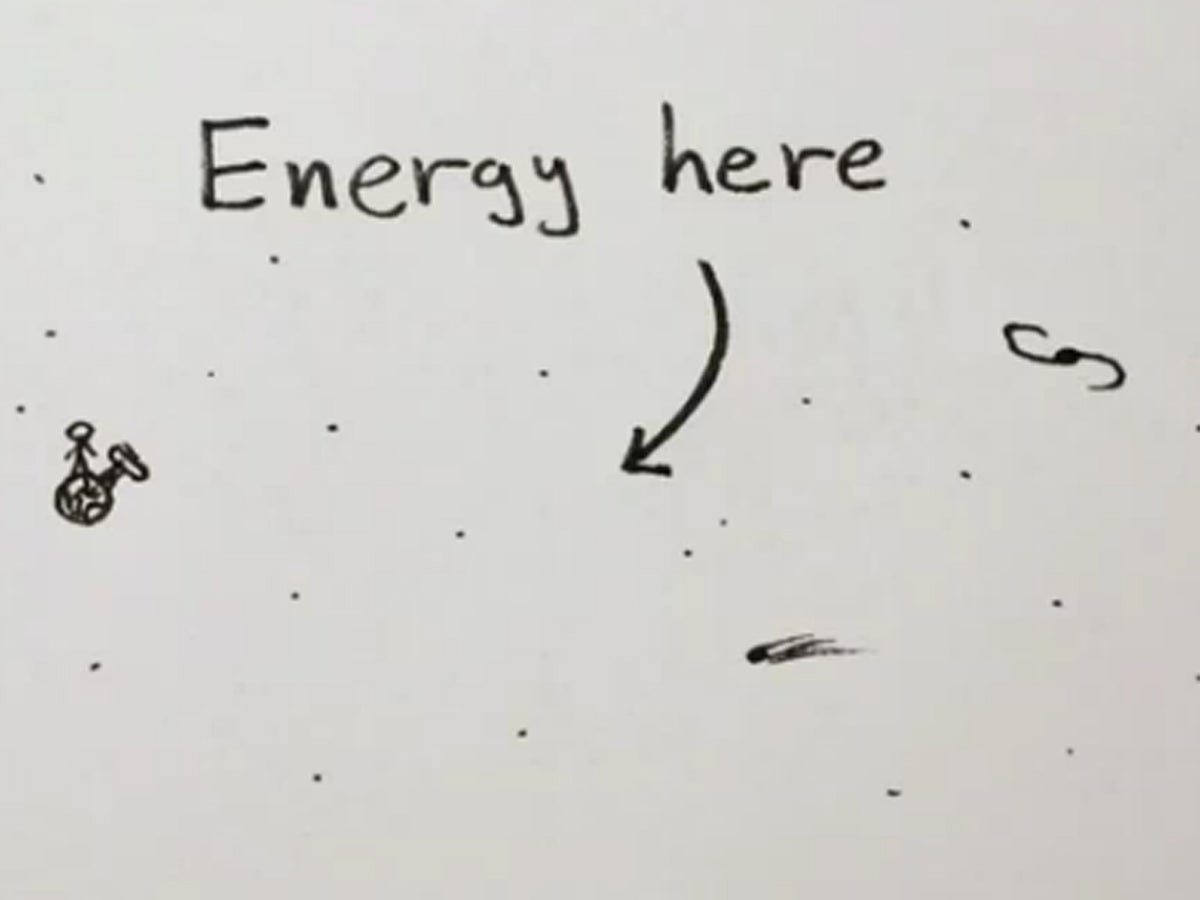 Energy here